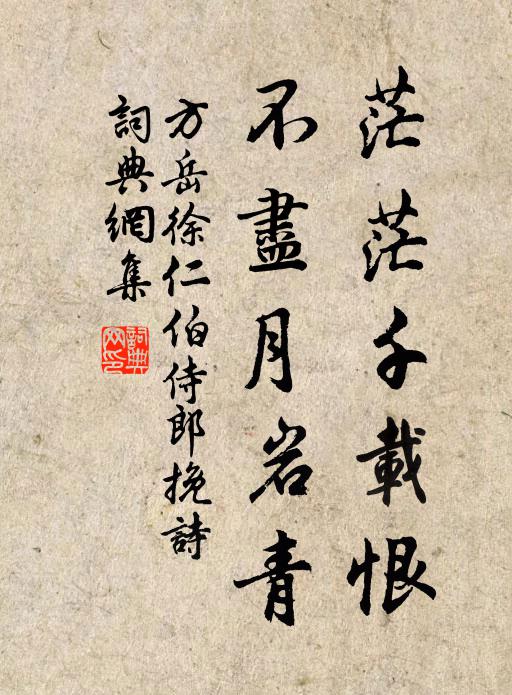 茫茫千載恨
不盡月岩青
方岳徐仁伯侍郎挽詩
詞典網集
詞典网印